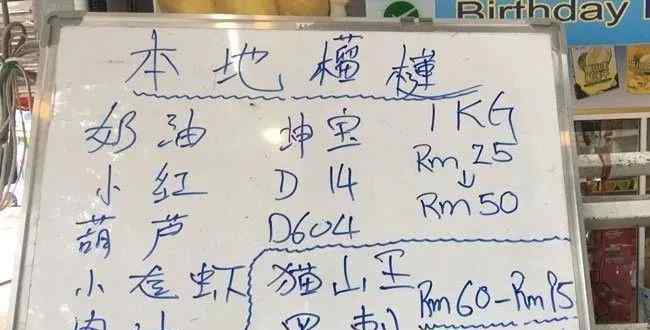 Birthday
本地榴槤
奶油 坤宝 1KG
小红 D14 Rm 25
↓
葫芦 D604 Rm50
小 虾 猫山王 Rm60-Rm
黑刺